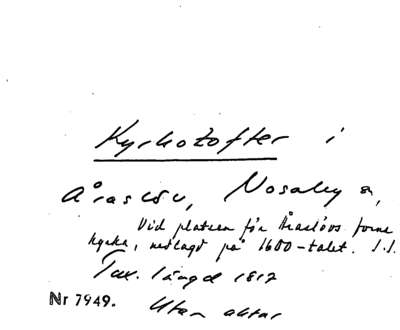 Kyrkotofter i
Åraslöv, Nosaby sn,
Vid platsen för Åraslövs forne
kyrka, nedlagd på 1600-talet. S.S.
Tax. längd 1812
Nr 7949. Utan aktar